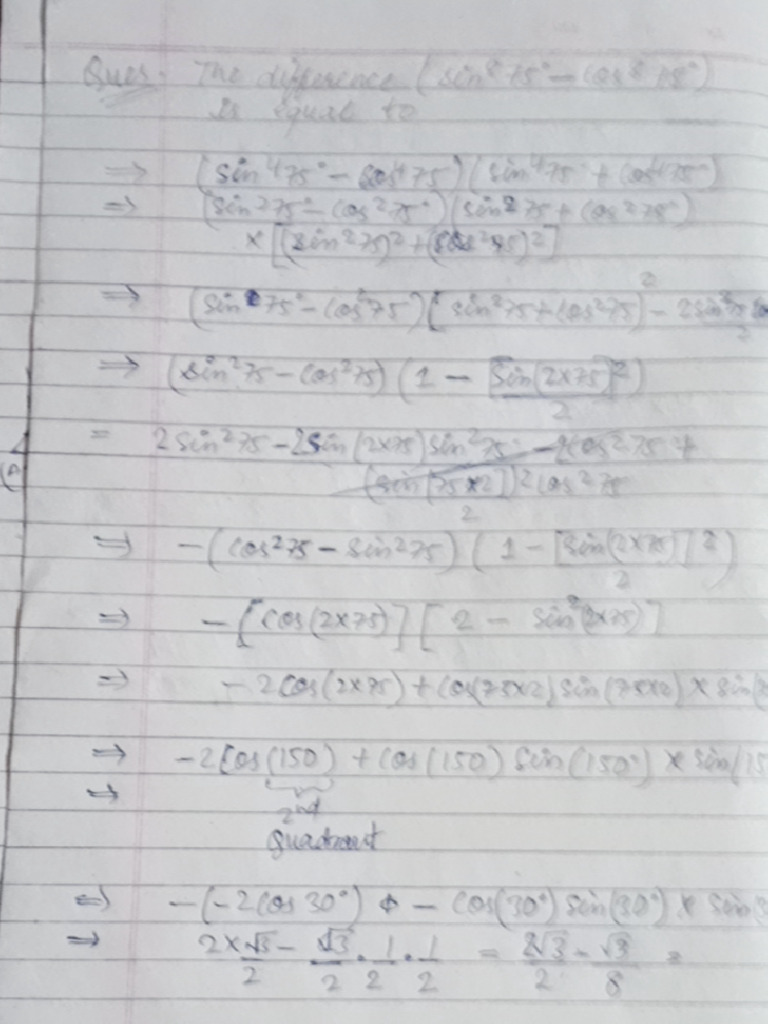 Ques. The difference (sin⁸ 75° - cos⁸ 75°)
is equal to
⇒ (sin⁴75° - cos⁴75) (sin⁴75° + cos⁴75°)
⇒ (sin²75° - cos²75°) (sin²75 + cos²75°)
× [(sin²75)² + (cos²75)²]
⇒ (sin²75° - cos²75) [sin²75 + cos²75)² - 2sin²75
2
⇒ (sin²75 - cos²75) (1 - [sin(2×75)]²)
2
= 2 sin²75 - 2sin(2×75) sin²75 - 2cos²75 +
(sin[75×2])² cos²75
2
⇒ -(cos²75 - sin²75) (1 - [sin(2×75)]²)
2
⇒ -[cos(2×75)] [2 - sin²(2×75)]
⇒ -2cos(2×75) + cos(75×2) sin(75×2) × sin(
⇒ -2cos(150) + cos(150) sin(150°) × sin(15
⇒ 2nd
Quadrant
⇒ -(-2cos 30°) - cos(30°) sin(30°) × sin(3
⇒ 2×√3/2 - √3/2 . 1/2 . 1/2 = 2√3/2 - √3/8 =